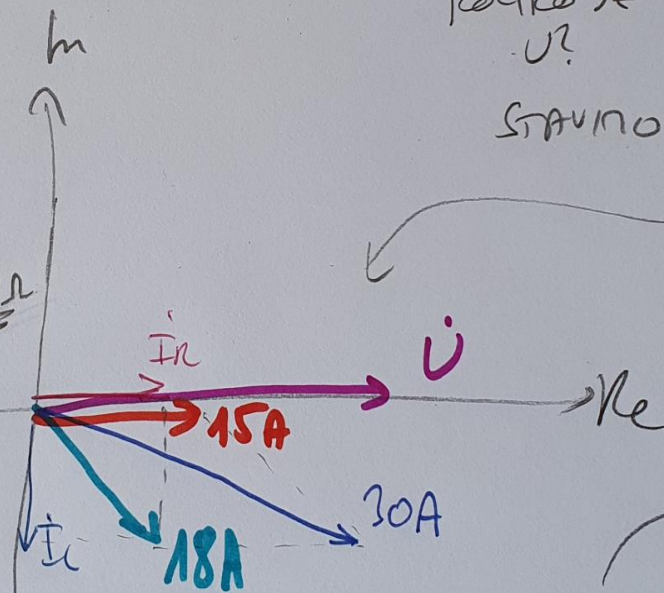 Im
U?
STAVIMO
Ω
İR
U̇
Re
15A
30A
İL
18A